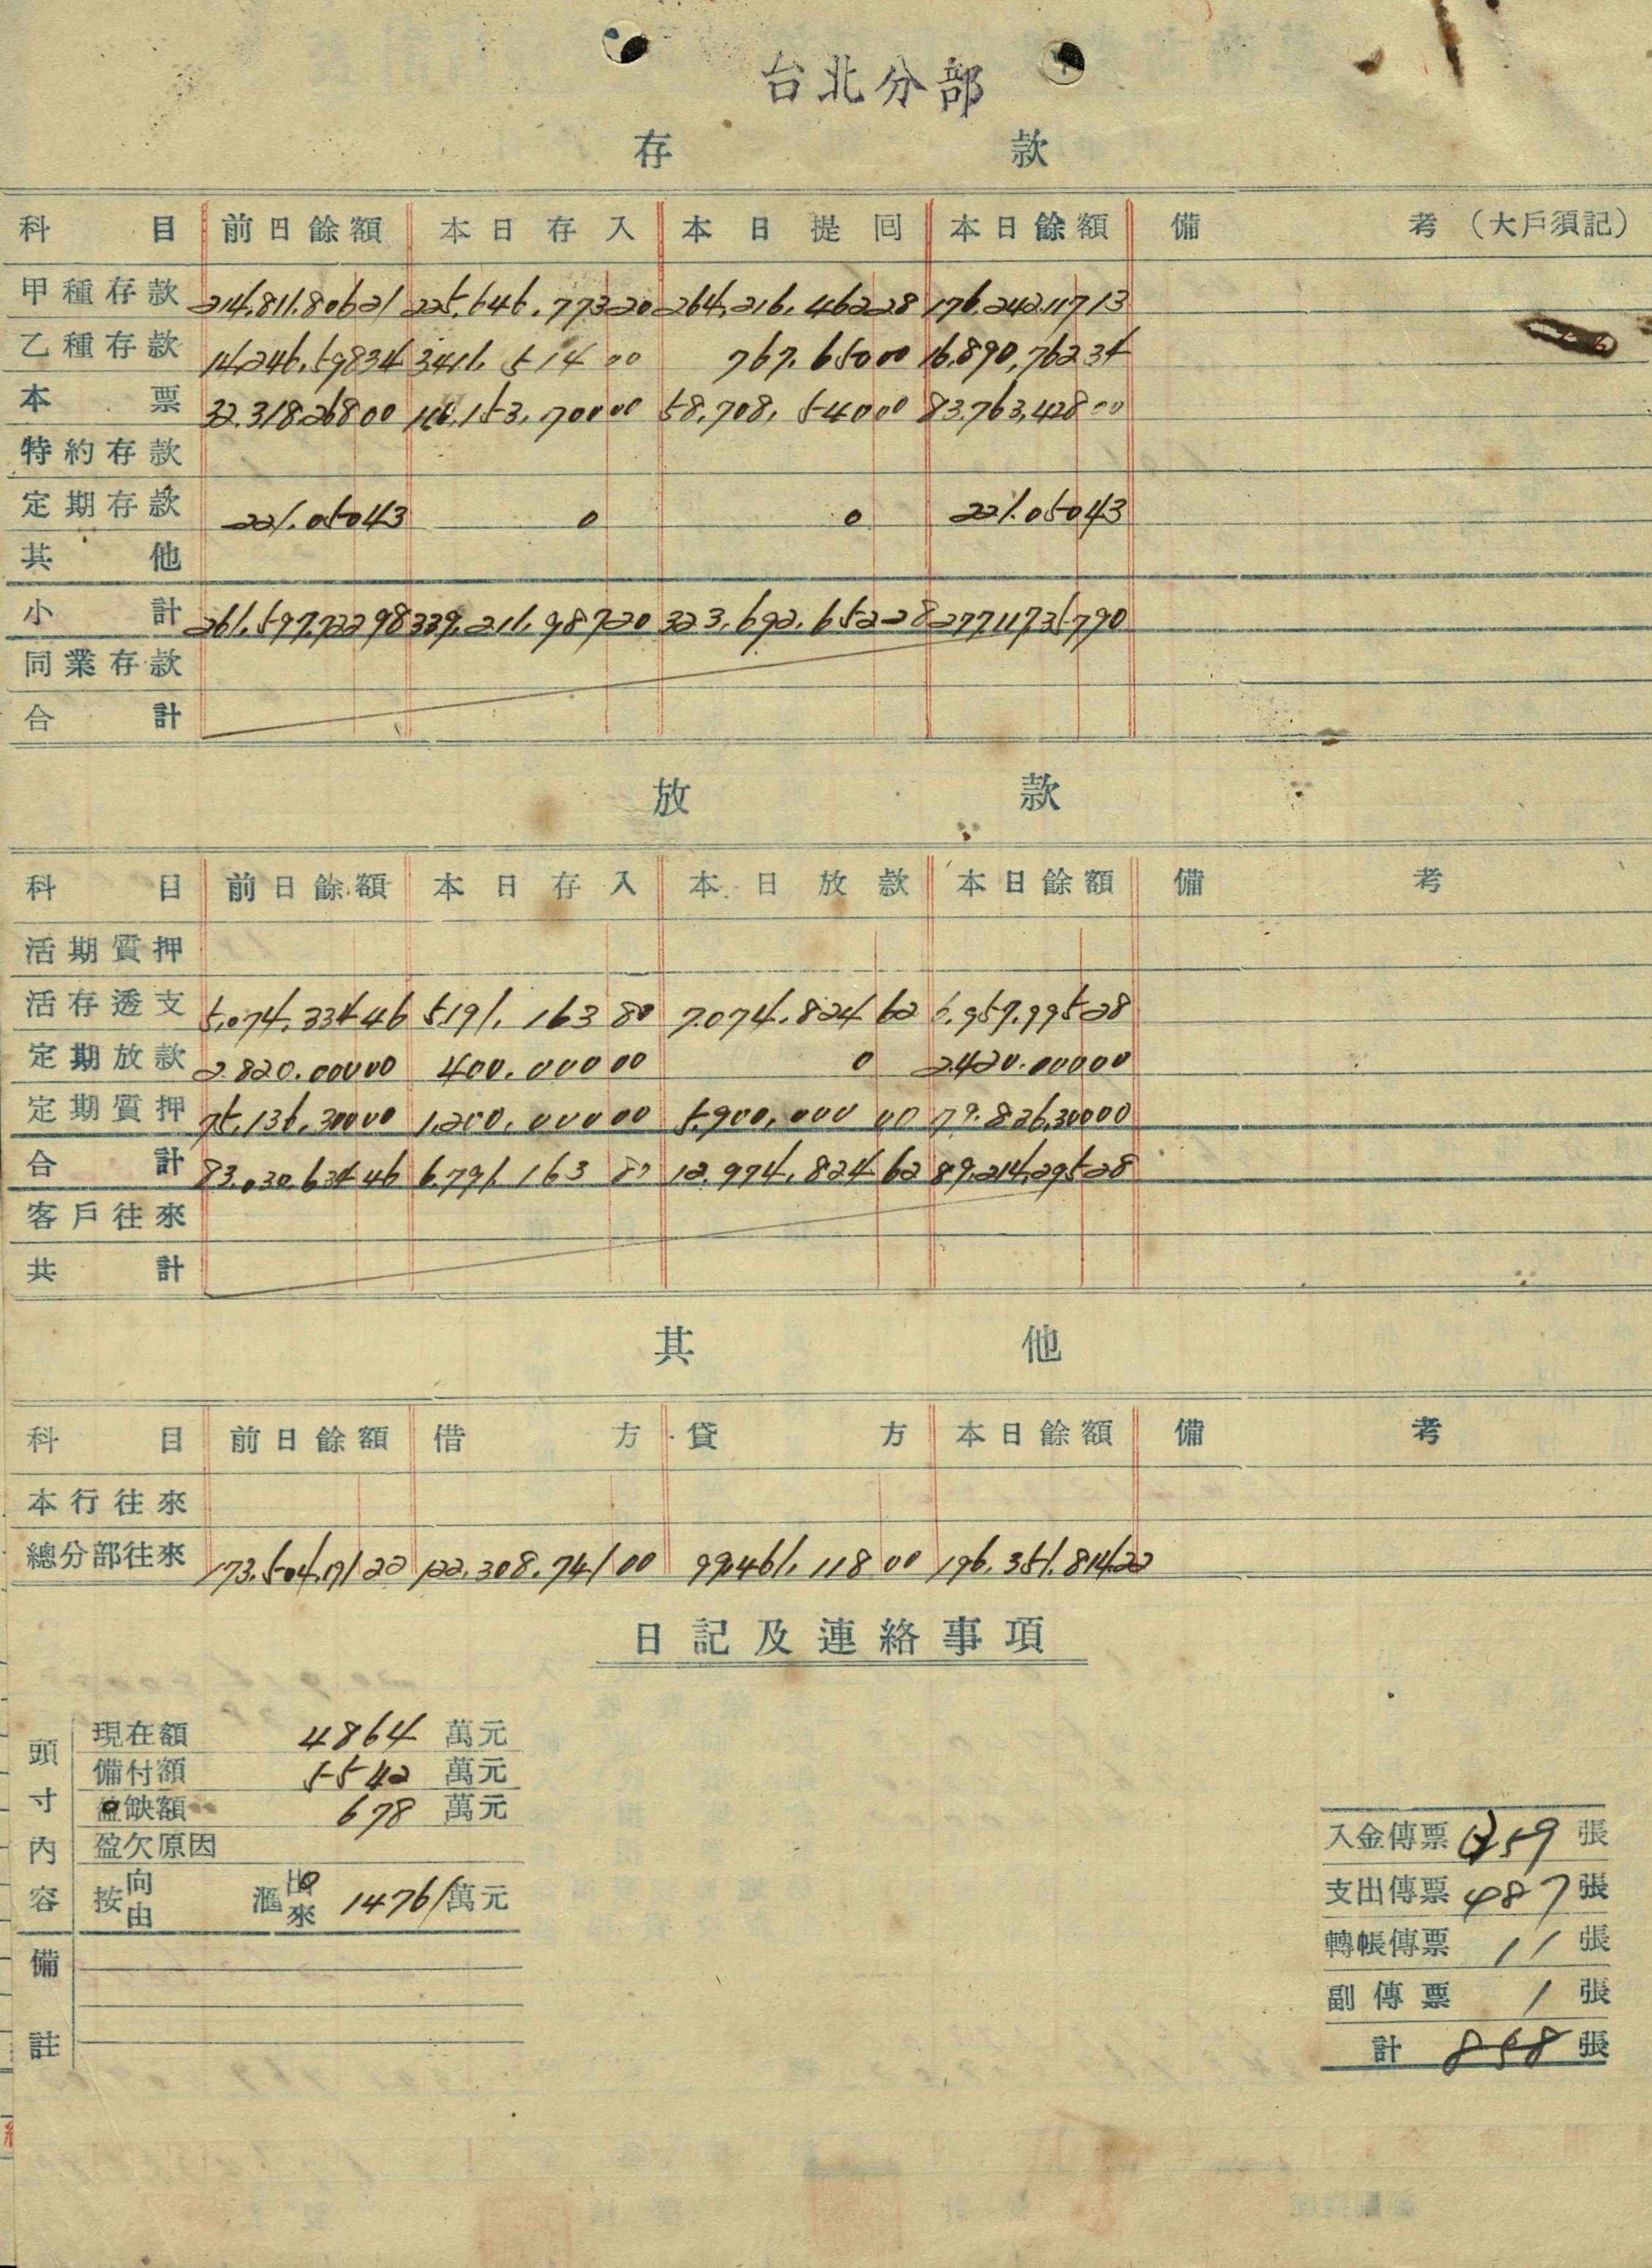 台北分部
存款
科目 前日餘額 本日存入 本日提回 本日餘額 備考(大戶須記)
甲種存款 214,811,806 21 225,646,773 20 264,216,462 28 176,242,117 13
乙種存款 14,246,598 34 3,411,514 00 767,650 00 16,890,762 34
本票 32,318,268 00 110,153,700 00 58,708,540 00 83,763,428 00
特約存款
定期存款 221,050 43 0 0 221,050 43
其他
小計 261,597,722 98 339,211,987 20 323,692,652 28 277,117,357 90
同業存款
合計
放款
科目 前日餘額 本日存入 本日放款 本日餘額 備考
活期質押
活存透支 5,074,334 46 5,191,163 80 7,074,824 62 6,957,995 28
定期放款 2,820,000 00 400,000 00 0 2,420,000 00
定期質押 75,136,300 00 1,200,000 00 5,900,000 00 79,836,300 00
合計 83,030,634 46 6,791,163 80 12,974,824 62 89,214,295 28
客戶往來
共計
其他
科目 前日餘額 借方 貸方 本日餘額 備考
本行往來
總分部往來 173,504,191 22 122,308,741 00 99,461,118 00 196,351,814 22
日記及連絡事項
頭寸內容
現在額 4864 萬元
備付額 5542 萬元
盈缺額 678 萬元
盈欠原因
按向由 滙出來 14761 萬元
備註
入金傳票 359 張
支出傳票 487 張
轉帳傳票 11 張
副傳票 1 張
計 858 張